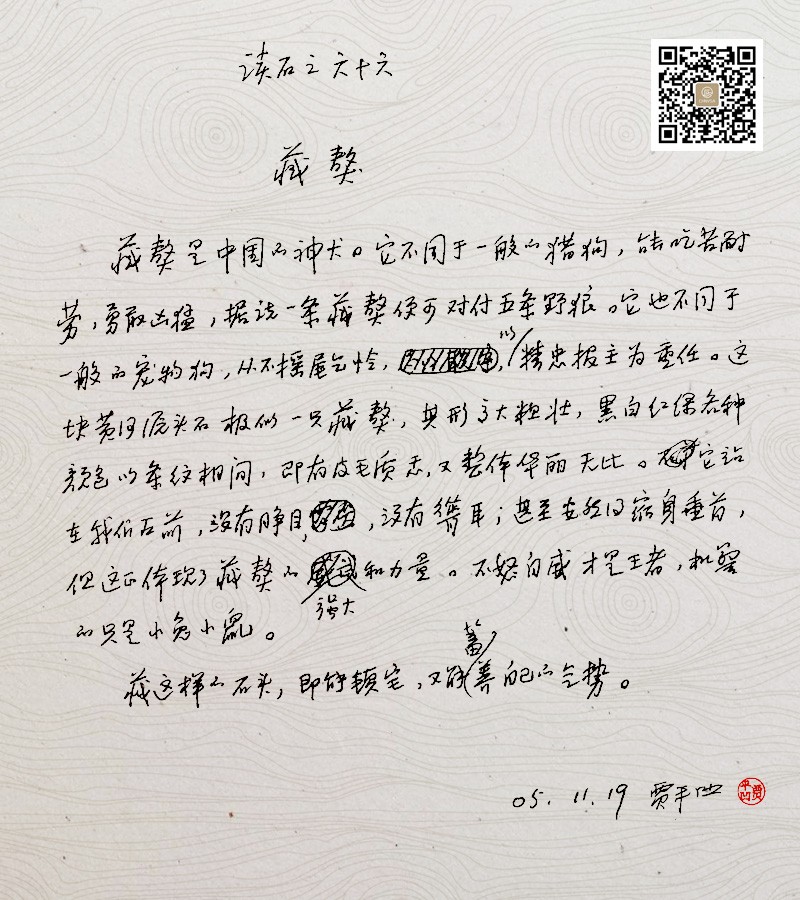 读石之六十六
藏獒
藏獒是中国的神犬。它不同于一般的猎狗，能吃苦耐
劳，勇敢凶猛，据说一条藏獒便可对付五条野狼。它也不同于
一般的宠物狗，从不摇尾乞怜，以精忠报主为重任。这
块黄河源头石极似一只藏獒，其形高大粗壮，黑白红绿各种
颜色的条纹相间，即有皮毛质感，又整体华丽无比。它站
在我们面前，没有睁目，没有耸耳；甚至安然的宿身垂首，
但这正体现了藏獒的强大和力量。不怒自威才是王者，机警
的只是小兔小鼠。
藏这样的石头，即能镇宅，又能蓄养自己的气势。
05.11.19 贾平凹
贾平凹